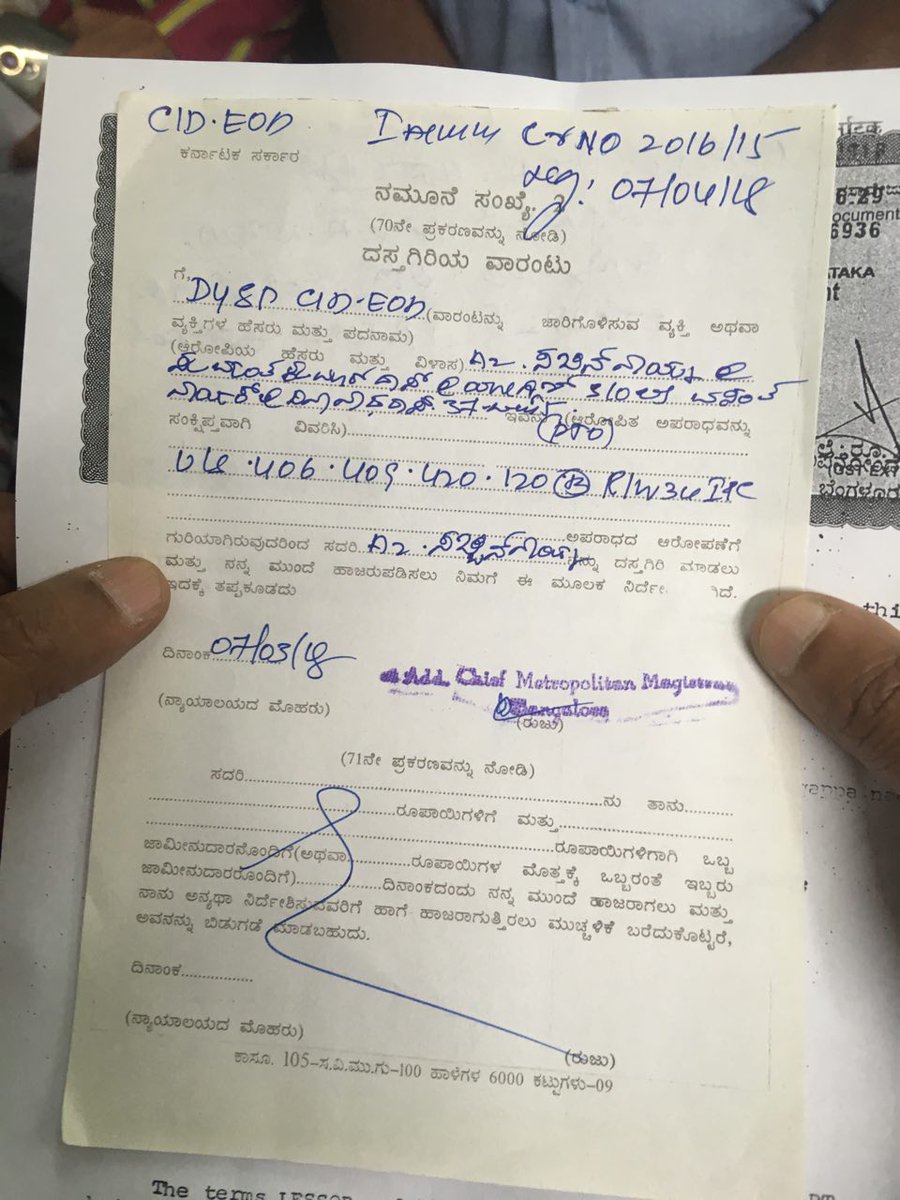 CID·EOD
CrNO 2016/15
ಕರ್ನಾಟಕ ಸರ್ಕಾರ
07/04/18
ನಮೂನೆ ಸಂಖ್ಯೆ. 2
(70ನೇ ಪ್ರಕರಣವನ್ನು ನೋಡಿ)
ದಸ್ತಗಿರಿಯ ವಾರಂಟು
ಗೆ,
DySP CID-EOD (ವಾರಂಟನ್ನು ಜಾರಿಗೊಳಿಸುವ ವ್ಯಕ್ತಿ ಅಥವಾ
ವ್ಯಕ್ತಿಗಳ ಹೆಸರು ಮತ್ತು ಪದನಾಮ)
(ಆರೋಪಿಯ ಹೆಸರು ಮತ್ತು ವಿಳಾಸ) A2. ಸಚಿನ್ ನಾಯ್ಕ @
ಇವನು (ಆರೋಪಿತ ಅಪರಾಧವನ್ನು
ಸಂಕ್ಷಿಪ್ತವಾಗಿ ವಿವರಿಸಿ) (PTO)
U/s. 406. 409. 420. 120(B) R/W 34 IPC
ಅಪರಾಧದ ಆರೋಪಣೆಗೆ
ಗುರಿಯಾಗಿರುವುದರಿಂದ ಸದರಿ A2. ಸಚಿನ್ ನಾಯ್ಕ ನನ್ನು ದಸ್ತಗಿರಿ ಮಾಡಲು
ಮತ್ತು ನನ್ನ ಮುಂದೆ ಹಾಜರುಪಡಿಸಲು ನಿಮಗೆ ಈ ಮೂಲಕ
ಇದಕ್ಕೆ ತಪ್ಪಕೂಡದು
ದಿನಾಂಕ 07/03/18
Add. Chief Metropolitan Magistrate
Bangalore
(ನ್ಯಾಯಾಲಯದ ಮೊಹರು)
(ರುಜು)
(71ನೇ ಪ್ರಕರಣವನ್ನು ನೋಡಿ)
ಸದರಿ ನು ತಾನು
ರೂಪಾಯಿಗಳಿಗೆ ಮತ್ತು
ರೂಪಾಯಿಗಳಿಗಾಗಿ ಒಬ್ಬ
ಜಾಮೀನುದಾರನೊಂದಿಗೆ(ಅಥವಾ ರೂಪಾಯಿಗಳ ಮೊತ್ತಕ್ಕೆ ಒಬ್ಬರಂತೆ ಇಬ್ಬರು
ಜಾಮೀನುದಾರರೊಂದಿಗೆ) ದಿನಾಂಕದಂದು ನನ್ನ ಮುಂದೆ ಹಾಜರಾಗಲು ಮತ್ತು
ನಾನು ಅನ್ಯಥಾ ನಿರ್ದೇಶಿಸುವವರಿಗೆ ಹಾಗೆ ಹಾಜರಾಗುತ್ತಿರಲು ಮುಚ್ಚಳಿಕೆ ಬರೆದುಕೊಟ್ಟರೆ,
ಅವನನ್ನು ಬಿಡುಗಡೆ ಮಾಡಬಹುದು.
ದಿನಾಂಕ
(ನ್ಯಾಯಾಲಯದ ಮೊಹರು)
(ರುಜು)
ಕಾಸೂ. 105-ಸ.ವಿ.ಮು.ಗು-100 ಹಾಳೆಗಳ 6000 ಕಟ್ಟುಗಳು-09
6936
The terms